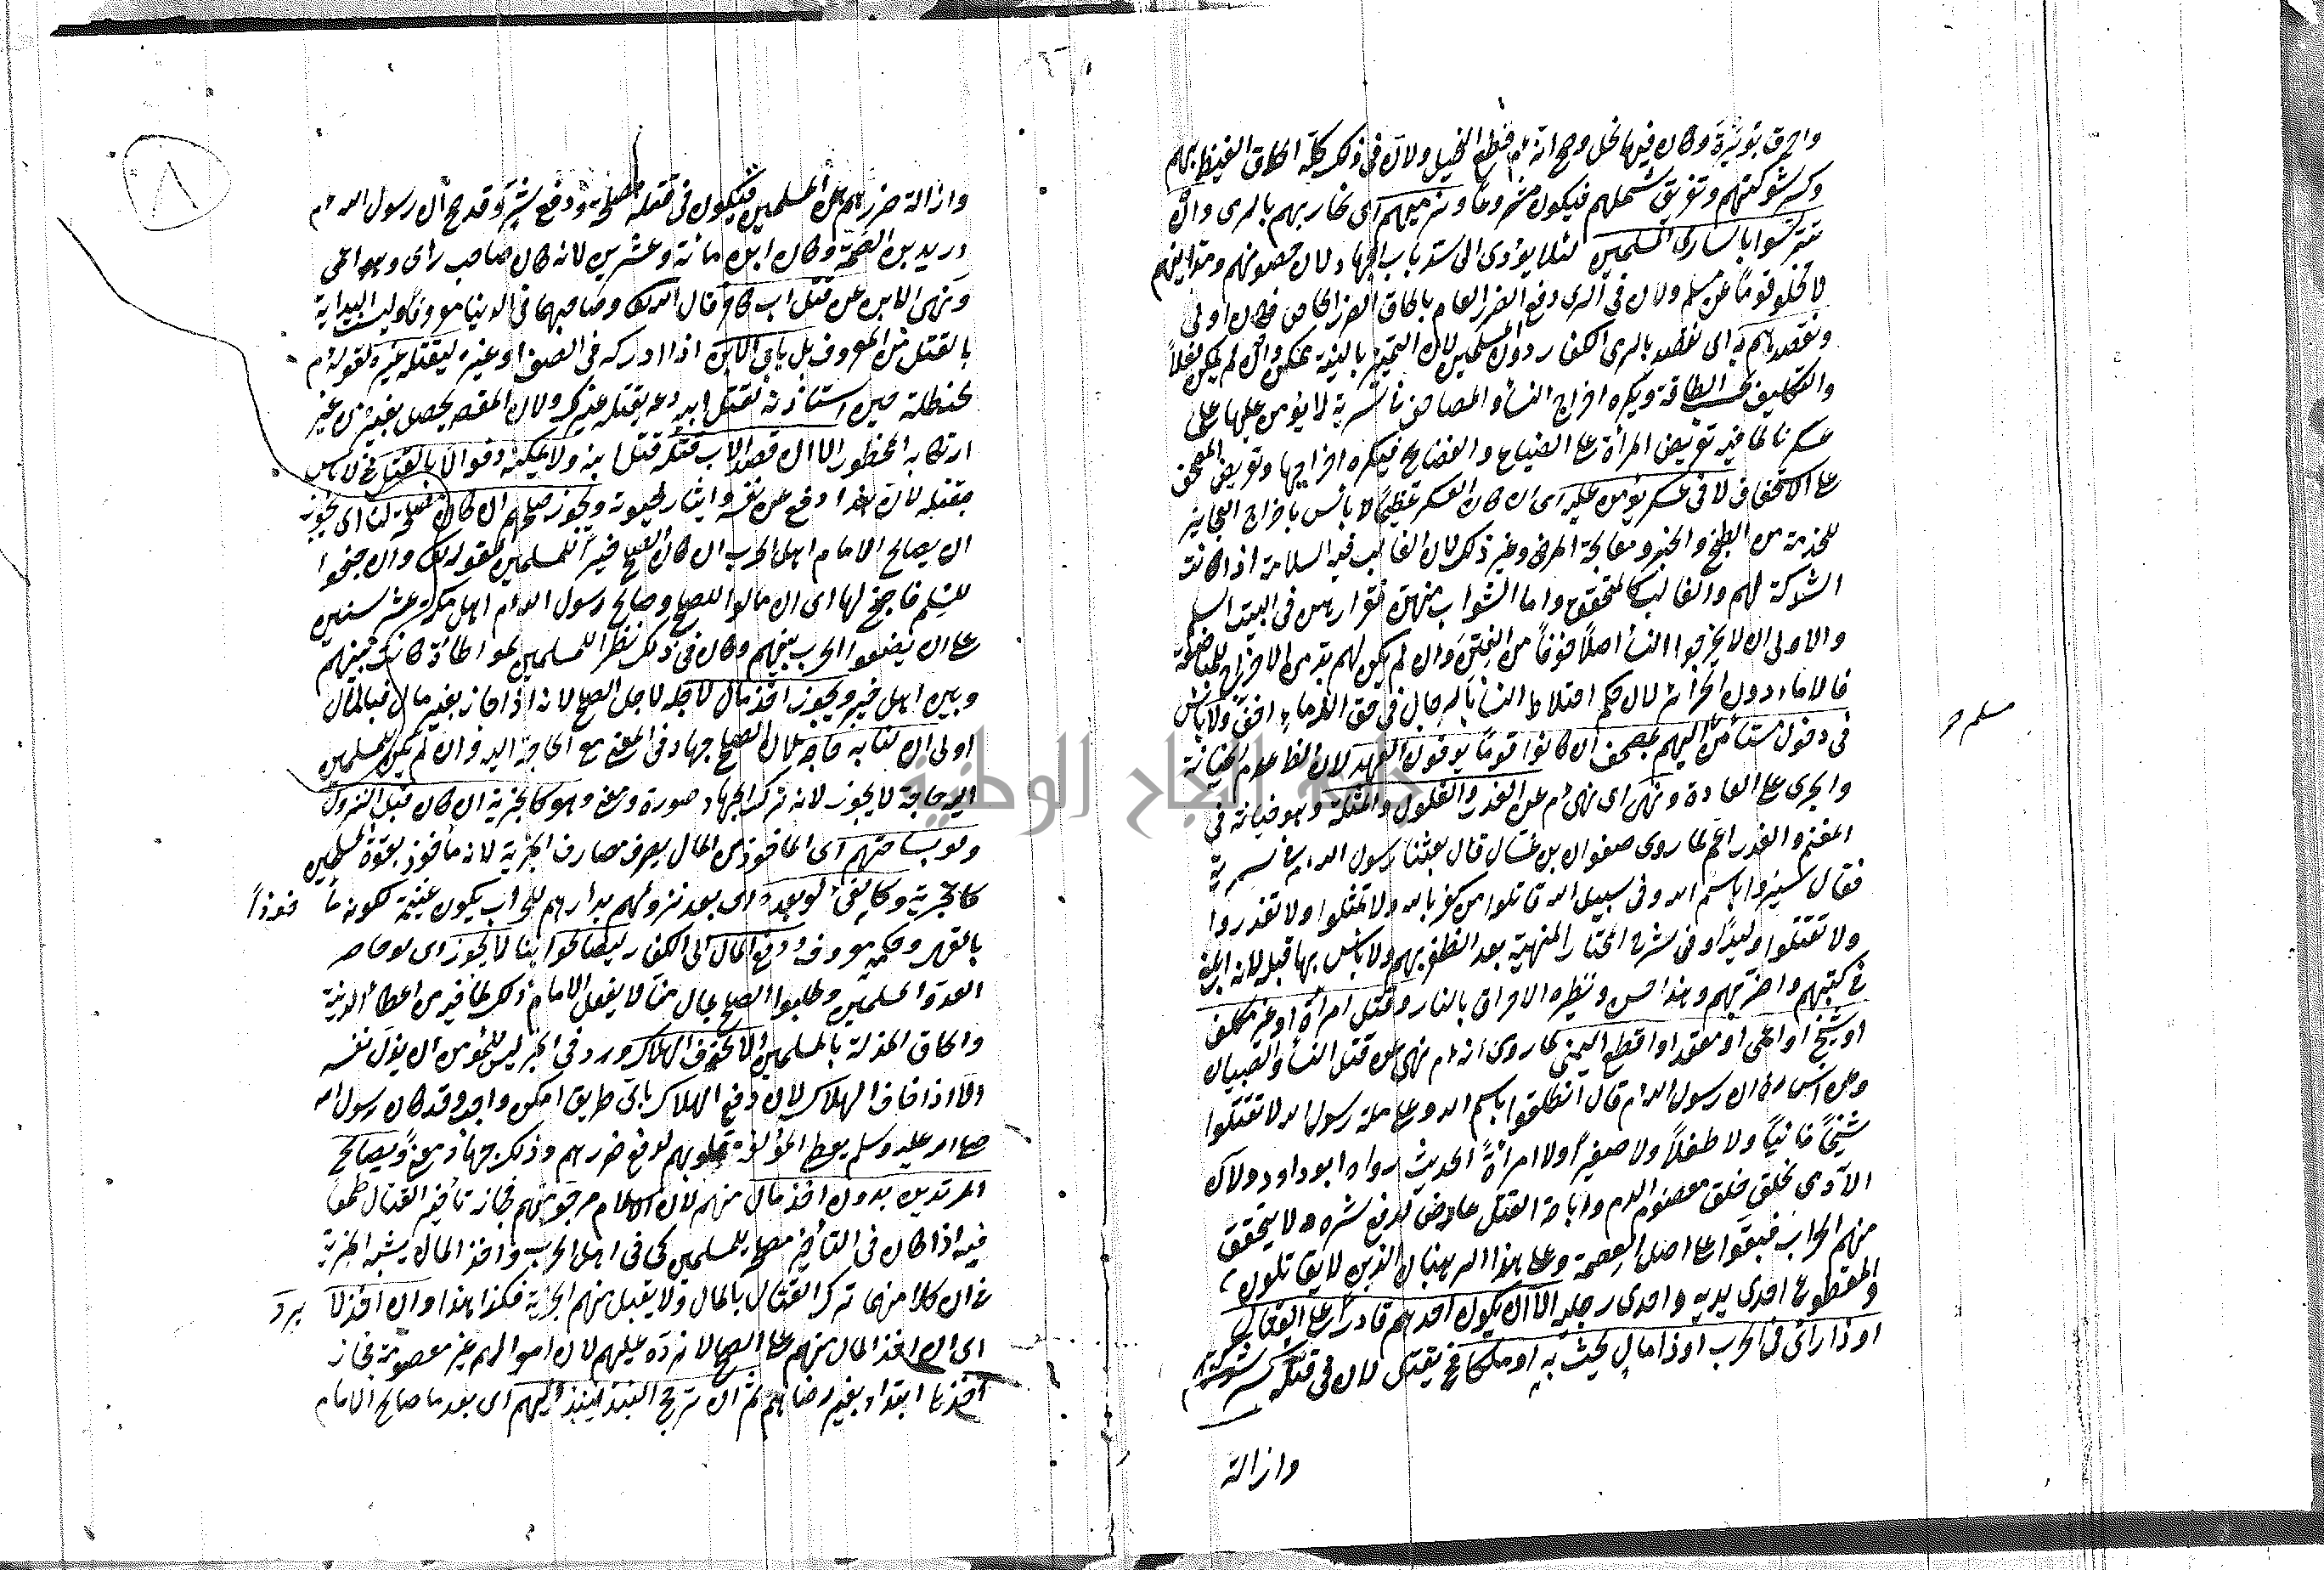 واحرق بويرة وكان فيها نخل وصح انه ءم قطع النخيل ولان في ذلك كله الحاق الغيظ بهم
وكسر شوكتهم وتفريق شملهم فيكون مشروعا ونرميهم اى نحاربهم بالرمى وان
تترسوا باسارى المسلمين لئلا يؤدى الى سد باب الجهاد ولان حصونهم ومداينهم
لا تخلو قوما عن مسلم ولان في الرمى دفع الضرر العام بالحاق الضرر الخاص فكان اولى
ونقصدهم به اى نقصد بالرمى الكفار دون المسلمين لان التمييز بالنية ممكن وان لم يمكن فعلاً
والتكليف بحسب الطاقة ويكره اخراج النسأ والمصاحف في سرية لا يؤمن عليها على
عسكرنا لما فيه تعريض المرأة على الضياع والفضايح فيكره اخراجها وتعريض المصحف
على الاستخفاف لا في عسكر يؤمن عليه اى ان كان العسكر عظيماً لا بأس باخراج العجايز
للخدمة من الطبخ والخبز ومعالجة المرضى وغير ذلك لان الغالب فيه السلامة اذا كانت
الشوكة لهم والغالب كالمتحقق واما الشواب منهن فقرارهن في البيت اسلم
والاولى ان لا يخرجوا النسأ اصلاً خوفاً من الفتن وان لم يكن لهم بد من الاخراج للمباضعة
فالاماء دون الحرائر لان حكم اختلاط النسأ بالرجال في حق الاماء اخف ولا بأس
في دخول مستأمن اليهم بمصحف ان كانوا قوما يوفون العهد لان الظاهر عدم الخيانة
والجرى على العادة ونهى اى نهى ءم عن الغدر والغلول والمثلة وهو خيانة في
المغنم والغدر اعم لما روى صفوان بن عسال قال بعثنا رسول الله ءم في سرية
فقال سيروا باسم الله وفي سبيل الله قاتلوا من كفر بالله ولا تمثلوا ولا تغدروا
ولا تقتلوا وليداً وفى شرح المختار المنهية بعد الظفر بهم ولا بأس بها قبله لانه ابلغ
في كبتهم واضر بهم وهذا حسن ونظيره الاحراق بالنار وقتل امرأة او غير مكلف
او شيخ او اعمى او مقعد او اقطع اليمنى لما روى انه ءم نهى عن قتل النسأ والصبيان
وعن انس ان رسول الله ءم قال انطلقوا باسم الله وعلى ملة رسول الله لا تقتلوا
شيخاً فانياً ولا طفلاً ولا صغيراً ولا امرأة الحديث رواه ابو داود ولان
الآدمى خلق معصوم الدم واباحة القتل عارض لدفع شره ولا يتحقق
منهم الحراب فبقوا على اصل العصمة وعلى هذا الرهبان الذين لا يقاتلون
والمقطوع احدى يديه واحدى رجليه الا ان يكون احدهم قادراً على القتال
او ذا رأى في الحرب او ذا مال يحث به او ملكا فح يقتل لان في قتله كسر شوكتهم
وازالة
مسلم حر
وازالة ضررهم عن المسلمين فيكون في قتله مصلحة ودفع شر وقد صح ان رسول الله ءم
دريد بن الصمة وكان ابن مائة وعشرين لانه كان صاحب رأى وهو اعمى
ونهى الابن عن قتل اب كافر قال الله تعالى وصاحبهما في الدنيا معروفا وليست البداية
بالقتل من المعروف بل يأبى الابن اذا ادركه في الصف او غيره ليقتله غيره لقوله ءم
لحنظلة حين استأذنه لقتل ابيه دعه يقتله غيرك ولان المقصد يحصل بغيره من غير
ارتكابه المحظور الا ان قصد الاب قتله قتل ابنه ولا يمكنه دفعه الا بالقتل فح لا بأس
بقتله لان هذا دفع عن نفسه وايثار لحيوته ويجوز صلحهم ان كان مصلحة لنا اى يجوز
ان يصالح الامام اهل الحرب ان كان الصلح خيراً للمسلمين لقوله تعالى وان جنحوا
للسلم فاجنح لها اى ان مالوا للصلح وصالح رسول الله ءم اهل مكة عشر سنين
على ان يضعوا الحرب بينهم وكان في ذلك نظرا للمسلمين لمواطأة كانت بينهم
وبين اهل خيبر ويجوز اخذ مال لاجله لاجل الصلح لانه اذا جاز بغير مال فبالمال
اولى ان لنا به حاجة لان الصلح جهاد في المعنى مع الحاجة اليه وان لم يكن للمسلمين
اليه حاجة لا يجوز لانه ترك الجهاد صورة ومعنى وهو كالجزية ان كان قبل النزول
بساحتهم اى المأخوذ من المال يصرف مصارف الجزية لانه مأخوذ بقوة المسلمين
كالجزية وكالفئ لو بعده اى بعد نزولهم بدارهم للحراب يكون غنيمة لكونه مأ خوذاً
بالقهر وحكمه معروف ودفع المال الى الكفار ليصالحوا بنا لا يجوز اى لو حاصر
العدو المسلمين وطلبوا الصلح بمال منا لا يفعل الامام ذلك لما فيه من اعطاء الدنية
والحاق المذلة بالمسلمين الا لخوف الهلاك ورد في الخبر ليس للمؤمن ان يذل نفسه
الا اذا خاف الهلاك لان دفع الهلاك باى طريق امكن واجب وقد كان رسول الله
صلى الله عليه وسلم يعطى المؤلفة قلوبهم لدفع ضررهم وذلك جهاد معنى ويصالح
المرتدين بدون اخذ مال منهم لان الاسلام مرجو منهم فجاز تأخير القتال طمعا
فيه اذا كان في التأخير مصلحة للمسلمين كما في اهل الحرب واخذ المال يشبه الجزية
في ان كلا منهما ترك القتال بالمال ولا يقبل منهم الجزية فكذا هذا وان اخذ لا يرد
اى ان اخذ المال منهم على الصلح لا نرده عليهم لان اموالهم غير معصومة فجاز
اخذها ابتداء بغير رضاهم ثم ان ترجح النبذ نبذ اليهم اى بعد ما صالح الامام
٨
جامعة النجاح الوطنية